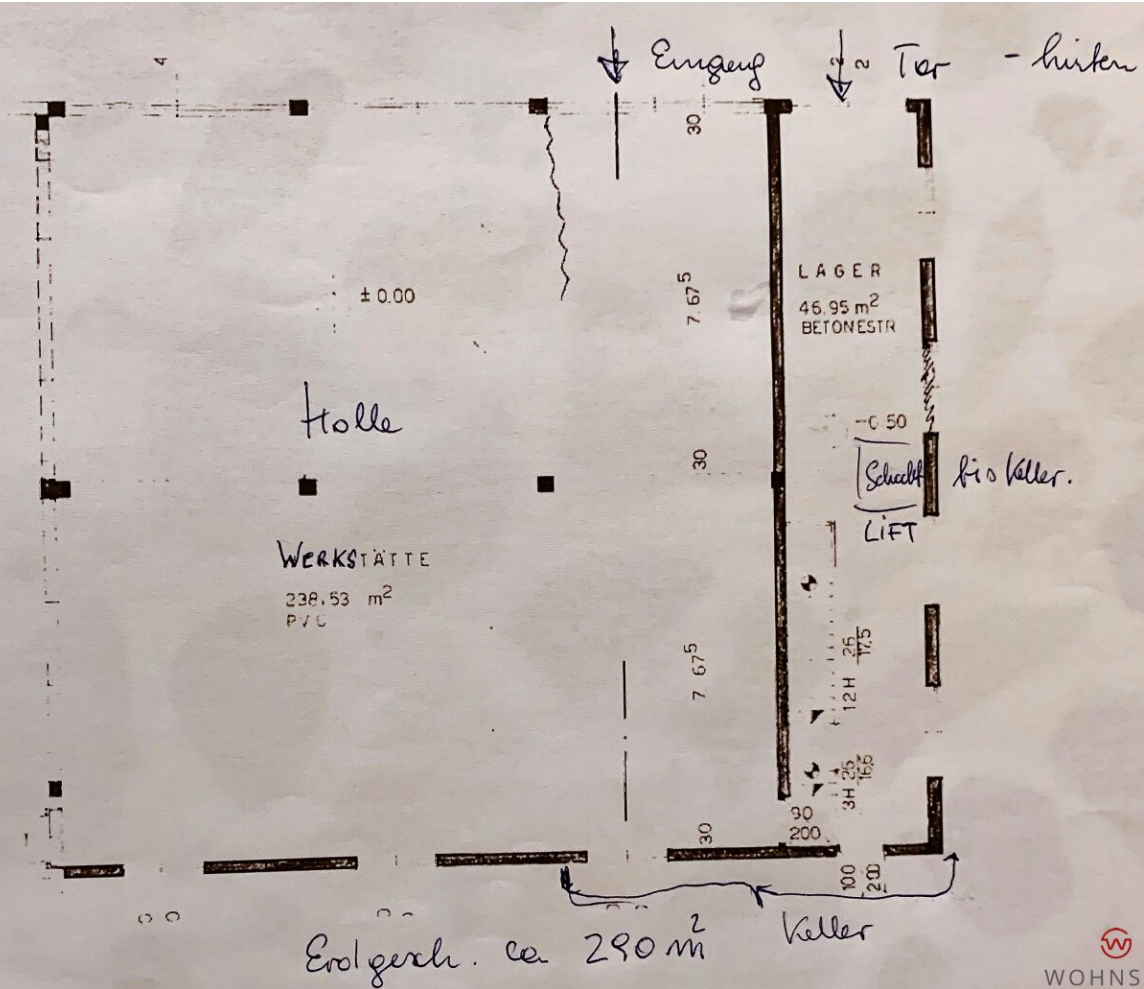 4
Eingang
2
2
Tor - hinten
30
7.67⁵
LAGER
46.95 m²
BETONESTR
± 0.00
Halle
-0.50
30
Schacht
bis Keller.
LIFT
WERKSTÄTTE
238.53 m²
PVC
7 67⁵
12H 26
17.5
3H 26
16.6
90
200
30
100
200
Keller
Erdgesch. ca 290 m²
WOHNS